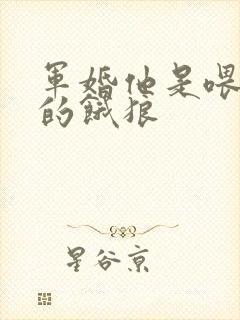 軍婚他是喂
的餓狼
星谷京